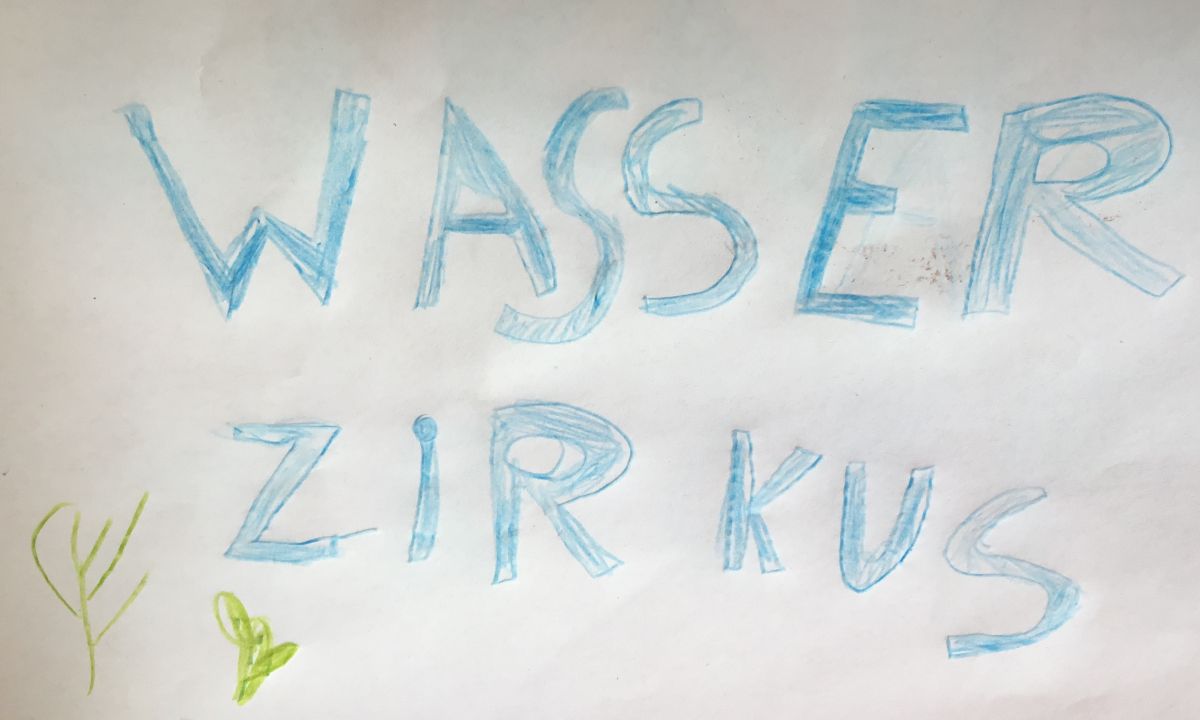 WASSER
ZiRKUS